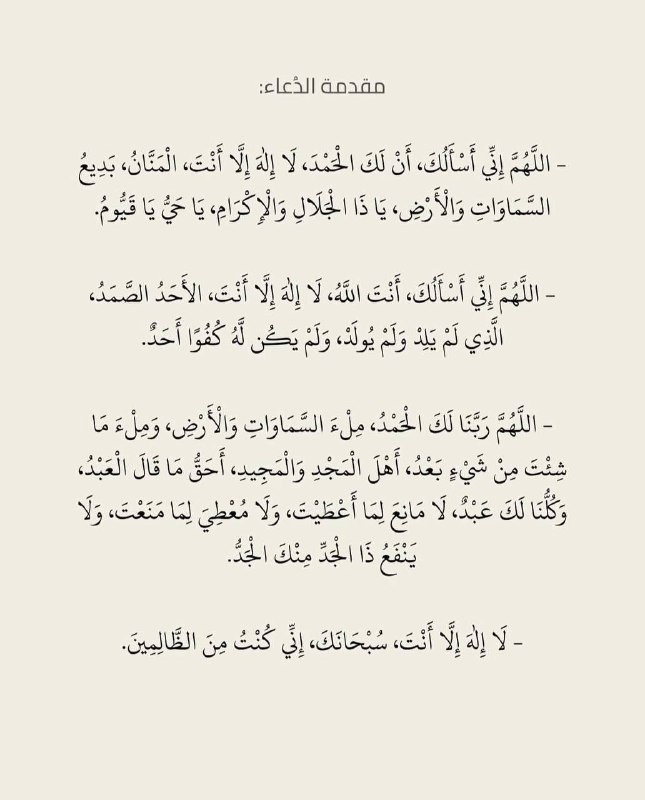 مقدمة الدْعاء:
- اللَّهُمَّ إِنِّي أَسْأَلُكَ، أَنْ لَكَ الْحَمْدَ، لَا إِلٰهَ إِلَّا أَنْتَ، الْمَنَّانُ، بَدِيعُ
السَّمَاوَاتِ وَالْأَرْضِ، يَا ذَا الْجَلَالِ وَالْإِكْرَامِ، يَا حَيُّ يَا قَيُّومُ.
- اللَّهُمَّ إِنِّي أَسْأَلُكَ، أَنْتَ اللَّهُ، لَا إِلٰهَ إِلَّا أَنْتَ، الأَحَدُ الصَّمَدُ،
الَّذِي لَمْ يَلِدْ وَلَمْ يُولَدْ، وَلَمْ يَكُن لَّهُ كُفُوًا أَحَدٌ.
- اللَّهُمَّ رَبَّنَا لَكَ الْحَمْدُ، مِلْءَ السَّمَاوَاتِ وَالْأَرْضِ، وَمِلْءَ مَا
شِئْتَ مِنْ شَيْءٍ بَعْدُ، أَهْلَ الْمَجْدِ وَالْمَجِيدِ، أَحَقُّ مَا قَالَ الْعَبْدُ،
وَكُلُّنَا لَكَ عَبْدٌ، لَا مَانِعَ لِمَا أَعْطَيْتَ، وَلَا مُعْطِيَ لِمَا مَنَعْتَ، وَلَا
يَنْفَعُ ذَا الْجَدِّ مِنْكَ الْجَدُّ.
- لَا إِلٰهَ إِلَّا أَنْتَ، سُبْحَانَكَ، إِنِّي كُنْتُ مِنَ الظَّالِمِينَ.